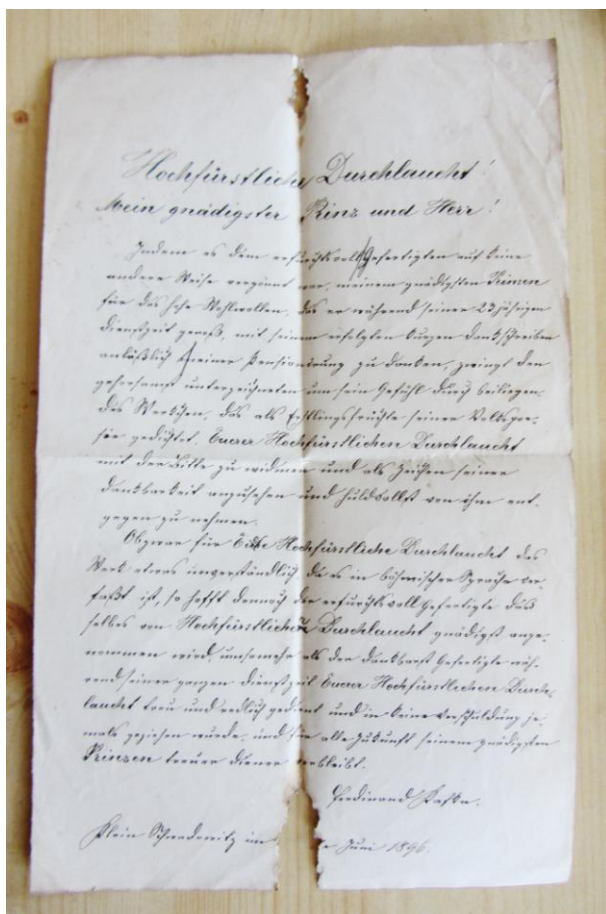 Hochfürstliche Durchlaucht!
Mein gnädigster Prinz und Herr!
Indem es dem erfurchtsvoll Gefertigten auf keine
andere Weise vergönnt war, meinem gnädigsten Prinzen
für das hohe Wohlwollen, das er während seiner 23 jährigen
Dienstzeit genoß, mit seinem erfolgten kurzen Dankschreiben
anläßlich seiner Pensionirung zu danken, zwingt den
gehorsamst unterzeichneten um sein Gefühl durch beiliegen-
des Werkchen, das als Erstlingsfrüchte seiner Volkspoe-
sie gedichtet. Euerer Hochfürstlichen Durchlaucht
mit der Bitte zu widmen und als Zeichen seiner
Dankbarkeit anzusehen und huldvollst von ihm ent-
gegen zu nehmen.
Obzwar für Hochfürstliche Durchlaucht das
Werk etwas unverständlich da es in böhmischer Sprache ver-
faßt ist, so hofft dennoch der erfurchtsvoll Gefertigte daß
selbes von Hochfürstlicher Durchlaucht gnädigst ange-
nommen wird, umsomehr als der dankbarst Gefertigte wäh-
rend seiner ganzen Dienstzeit Euerer Hochfürstlichen Durch-
laucht treu und redlich gedient und in keine Verschuldung je-
mals geziehen wurde, und für alle Zukunft seinem gnädigsten
Prinzen treuer Diener verbleibt.
Ferdinand Kafka.
Klein Schwadowitz im Juni 1896.